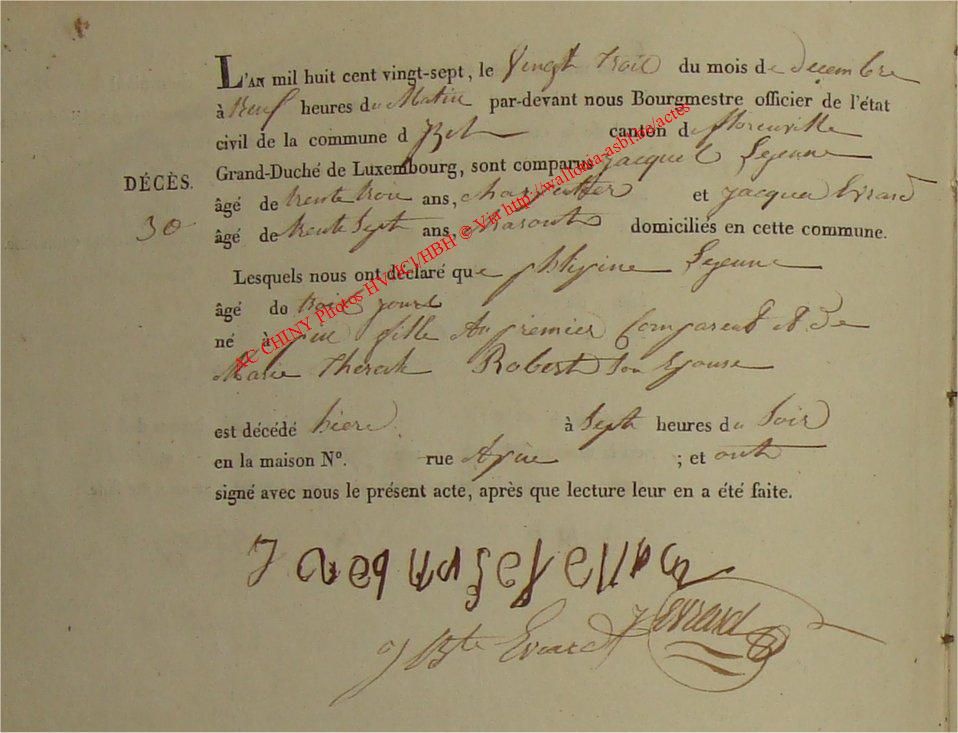 L'AN mil huit cent vingt-sept, le Vingt trois du mois de decembre
à Neuf heures du Matin par-devant nous Bourgmestre officier de l'état
civil de la commune d canton de florenville
Grand-Duché de Luxembourg, sont comparus jacques Lejeune
DÉCÈS.
âgé de trente trois ans, charpentier et jacques Evrard
30
âgé de trente Sept ans, domiciliés en cette commune.
Lesquels nous ont déclaré que Lejeune
âgé de trois jours
né à fille du premier Comparent et De
Marie therese Robert son Epouse
est décédé hiere à Sept heures du Soir
en la maison N°. rue ; et ont
signé avec nous le présent acte, après que lecture leur en a été faite.
J Bte Evrard J evrard
AC CHINY Photos HV/JCI/HBH © Via http://wallonia-asbl.be/actes